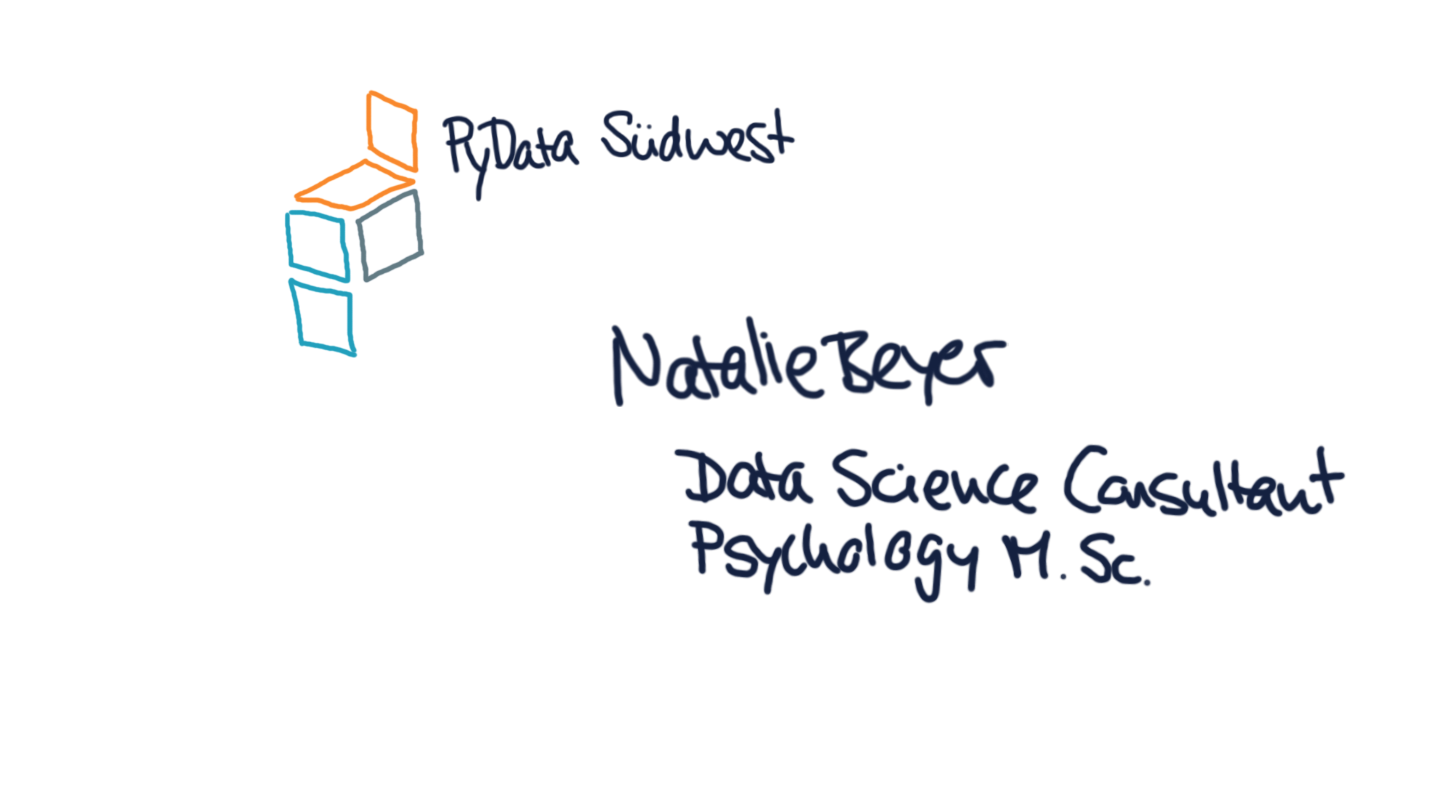 PyData Südwest
Natalie Beyer
Data Science Consultant
Psychology M. Sc.